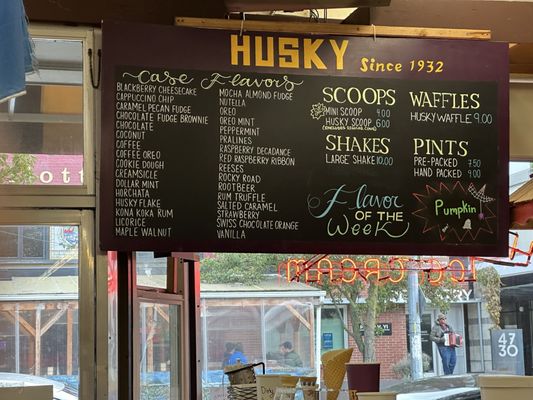 HUSKY Since 1932
Case Flavors
BLACKBERRY CHEESECAKE
CAPPUCCINO CHIP
CARAMEL PECAN FUDGE
CHOCOLATE FUDGE BROWNIE
CHOCOLATE
COCONUT
COFFEE
COFFEE OREO
COOKIE DOUGH
CREAMSICLE
DOLLAR MINT
HORCHATA
HUSKY FLAKE
KONA KOKA RUM
LICORICE
MAPLE WALNUT
MOCHA ALMOND FUDGE
NUTELLA
OREO
OREO MINT
PEPPERMINT
PRALINES
RASPBERRY DECADANCE
RED RASPBERRY RIBBON
REESES
ROCKY ROAD
ROOTBEER
RUM TRUFFLE
SALTED CARAMEL
STRAWBERRY
SWISS CHOCOLATE ORANGE
VANILLA
SCOOPS
MINI SCOOP 4.00
HUSKY SCOOP 6.00
SHAKES
LARGE SHAKE 10.00
WAFFLES
HUSKY WAFFLE 9.00
PINTS
PRE-PACKED 7.50
HAND PACKED 9.00
Flavor
OF THE
Week
Pumpkin
ott
47
30